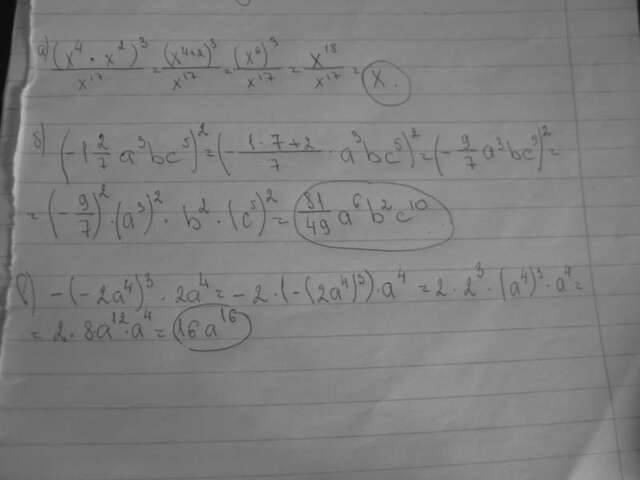 а) (x⁴ · x²)³/x¹⁷ = (x⁴⁺²)³/x¹⁷ = (x⁶)³/x¹⁷ = x¹⁸/x¹⁷ = x.
б) (-1 2/7 a³bc⁵)² = (- 1·7+2/7 · a³bc⁵)² = (- 9/7 a³bc⁵)² =
= (- 9/7)² · (a³)² · b² · (c⁵)² = 81/49 a⁶b²c¹⁰
в) -(-2a⁴)³ · 2a⁴ = -2 · (-(2a⁴)³) · a⁴ = 2 · 2³ · (a⁴)³ · a⁴ =
= 2 · 8a¹² · a⁴ = 16a¹⁶